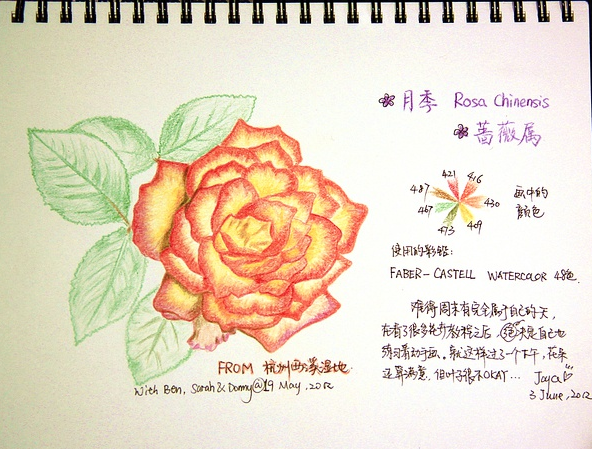 月季 Rosa Chinensis
蔷薇属
421
416
487
430
467
409
473
画中的
颜色
使用的彩铅:
FABER-CASTELL WATERCOLOR 48色.
难得周末有完全属于自己的一天,
在看了很多花卉教程之后, 还是自己
练习着动手画。就这样过了一个下午, 花朵
还算满意, 但叶子很不OKAY...
Joya
3 June, 2012
FROM 杭州西溪湿地.
With Ben, Sarah & Danny@19 May, 2012